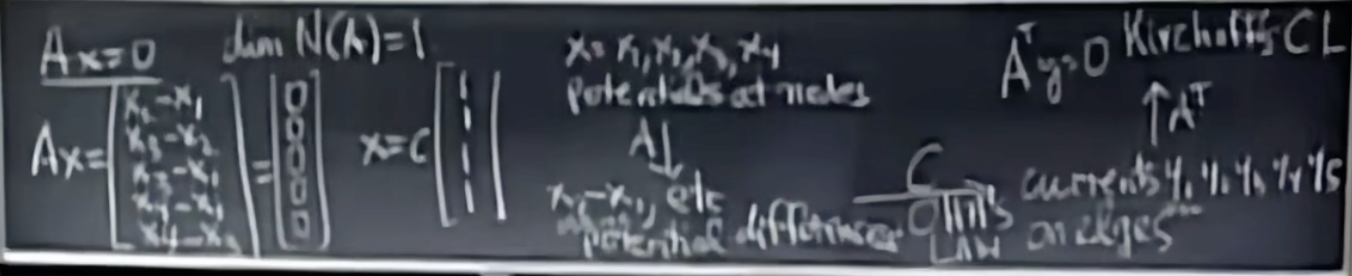 Ax=0 dim N(A)=1
Ax= [x₂-x₁ x₃-x₂ x₃-x₁ x₄-x₁ x₄-x₃] = [0 0 0 0 0] x=c [1 1 1 1]
x= x₁,x₂,x₃,x₄
potentials at nodes
A↓
x₂-x₁, etc
potential differences
C
Ohm's
LAW
Aᵀy=0 Kirchoff's CL
↑Aᵀ
currents y₁ y₂ y₃ y₄ y₅
on edges